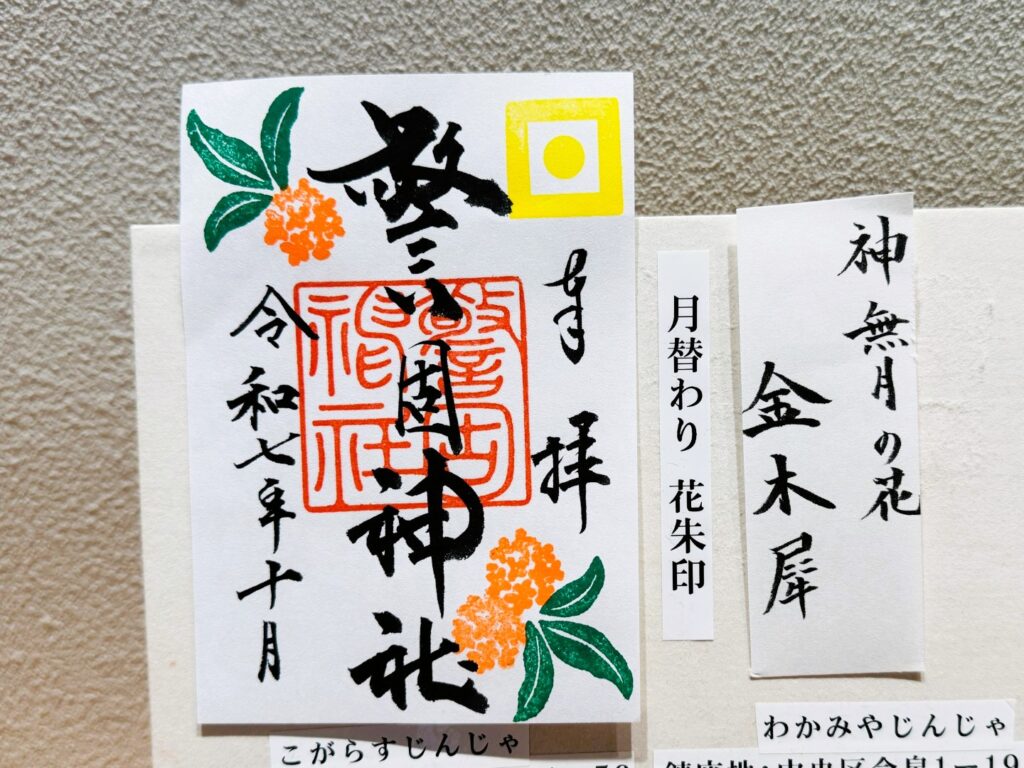 神無月の花
金木犀
月替わり 花朱印
奉拝
警固神社
警固神社
令和七年十月
わかみやじんじゃ
鎮座地・中央区今泉1ー19
こがらすじんじゃ